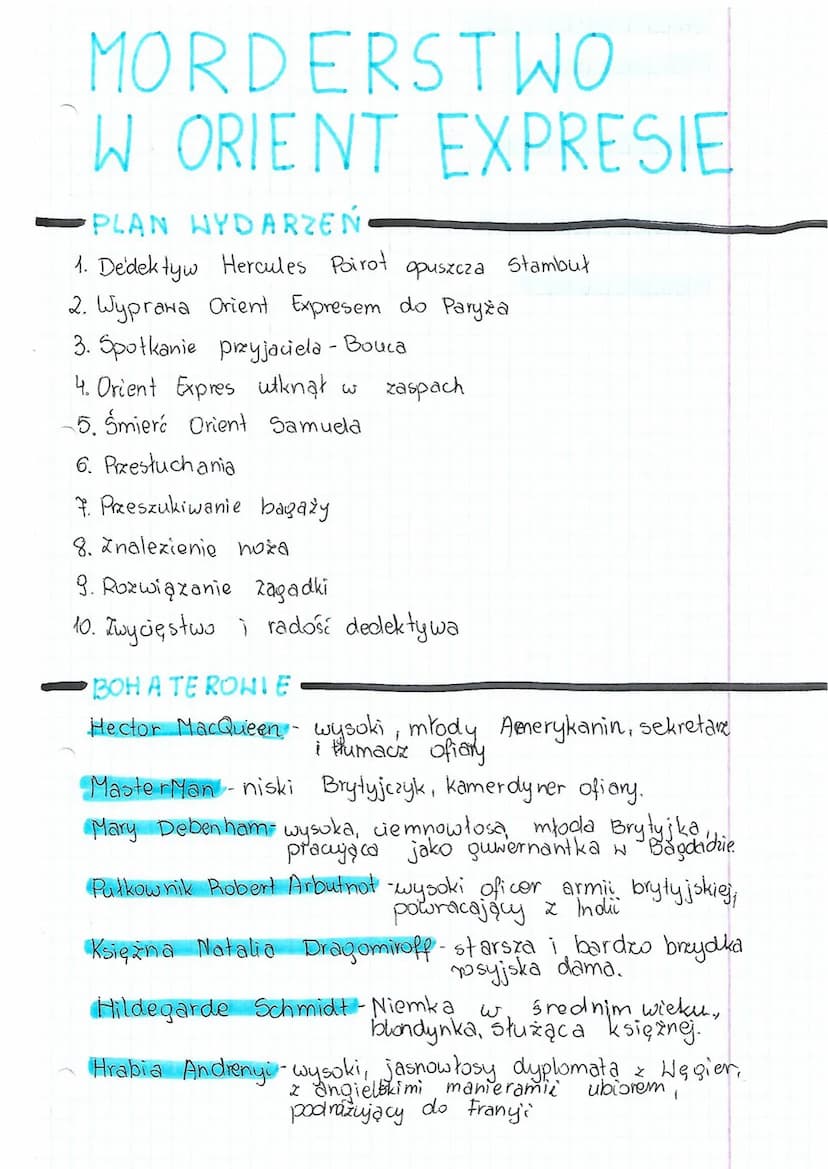 MORDERSTWO
W ORIENT EXPRESIE
PLAN WYDARZEŃ
1. Dedektyw Hercules Poirot opuszcza Stambuł
2. Wyprawa Orient Expresem do Paryża
3. Spotkanie przyjaciela - Bouca
4. Orient Expres utknął w zaspach
5. Śmierć Orient Samuela
6. Przesłuchania
7. Przeszukiwanie bagaży
8. Znalezienie noża
9. Rozwiązanie zagadki
10. Zwycięstwo i radość dedektywa
BOHATEROWIE
Hector MacQueen - wysoki, młody Amerykanin, sekretarz
i tłumacz ofiary
MasterMan - niski Brytyjczyk, kamerdyner ofiary.
Mary Debenham - wysoka, ciemnowłosa, młoda Brytyjka,
pracująca jako guwernantka w Bagdadzie
Pułkownik Robert Arbutnot - wysoki oficer armii brytyjskiej,
powracający z Indii
Księżna Natalia Dragomiroff - starsza i bardzo brzydka
rosyjska dama.
Hildegarde Schmidt - Niemka w średnim wieku,
blondynka, służąca księżnej.
Hrabia Andrenyi - wysoki, jasnowłosy dyplomata z Węgier,
z angielskimi manierami i ubiorem,
podróżujący do Francji